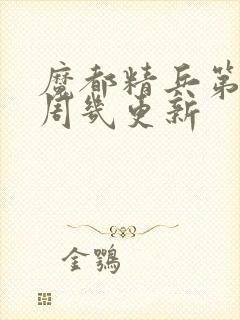 魔都精兵第
周几更新
金鹗